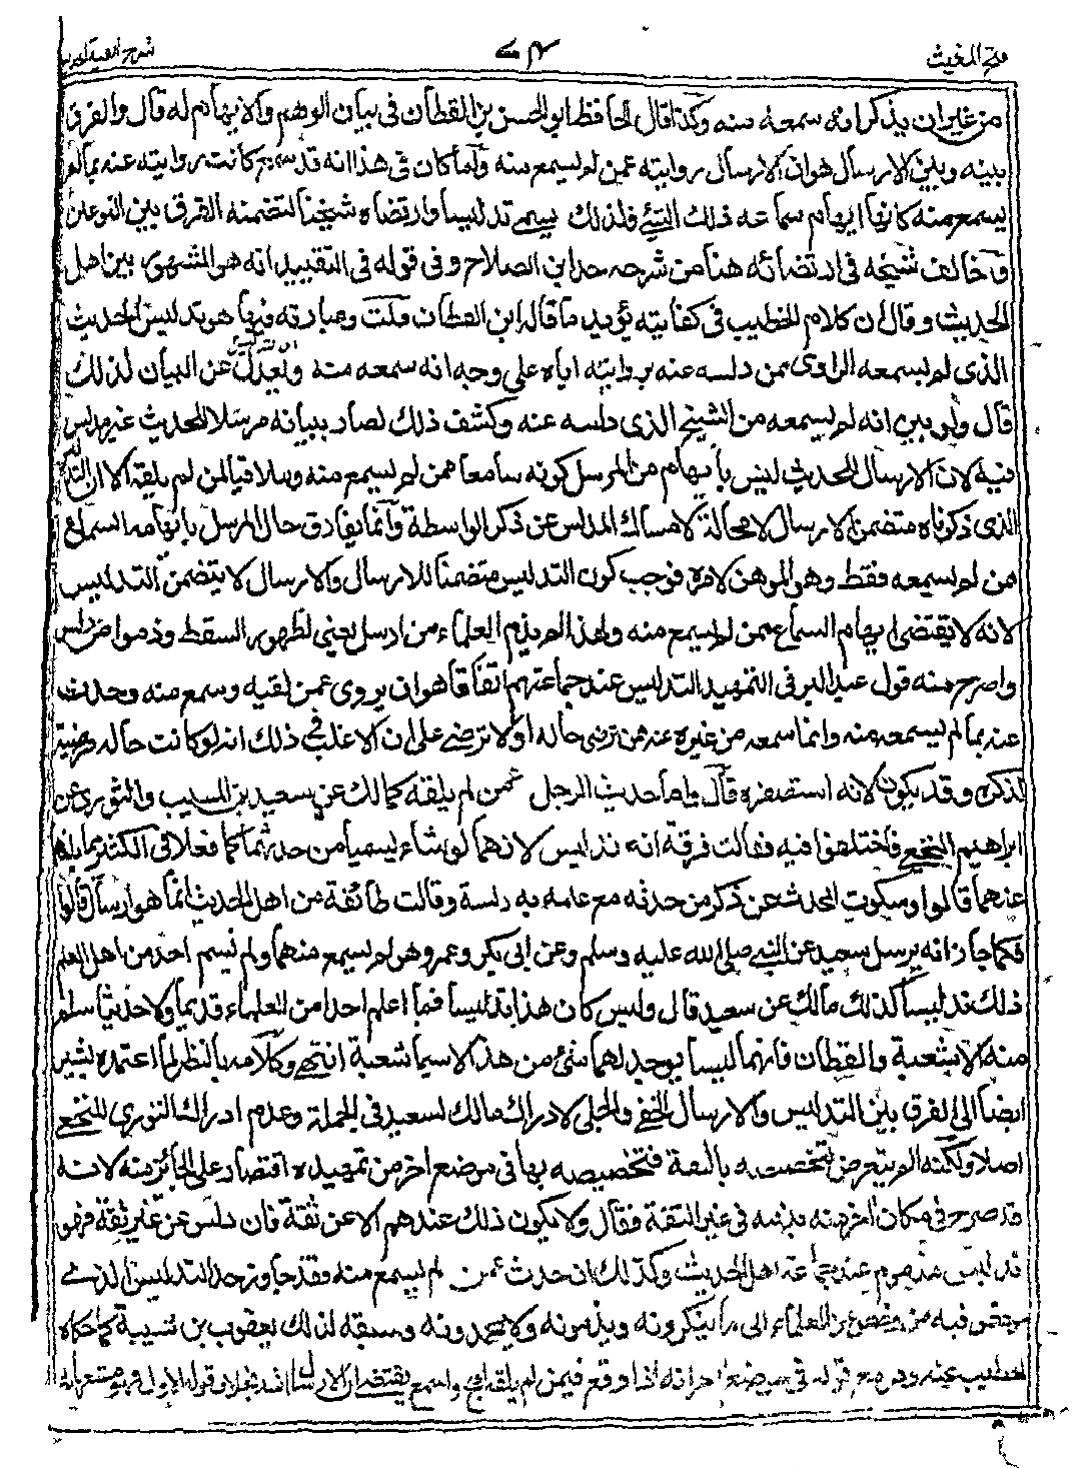 فتح المغيث
٧٤
شرح الفية الحديث
من غير ان يذكر انه سمعه منه وكذا قال الحافظ ابو الحسن بن القطان فى بيان الوهم والايهام له قال والفرق
بينه وبين الارسال هو ان الارسال روايته عمن لم يسمع منه ولما كان فى هذا انه قد سمع كانت روايته عنه بما لم
يسمع منه كانها ايهام سماعه ذلك الشئ فلذلك يسمى تدليسا وارتضاه شيخنا لتضمنه الفرق بين النوعين
وخالف شيخه فى ارتضائه هنا من شرحه حد ابن الصلاح وفى قوله فى التقييد انه هو المشهور بين اهل
الحديث وقال ان كلام الخطيب فى كفايته يؤيد ما قاله ابن القطان قلت وعبارته فيها هو تدليس الحديث
الذى لم يسمعه الراوى ممن دلسه عنه بروايته اياه على وجه انه سمعه منه ويعدل عن البيان لذلك
قال ولو بين انه لم يسمعه من الشيخ الذى دلسه عنه وكشف ذلك لصار ببيانه مرسلا للحديث غير مدلس
فيه لان الارسال للحديث ليس بايهام من المرسل كونه سامعا ممن لم يسمع منه وملاقيا لمن لم يلقه الا ان التدليس
الذى ذكرناه متضمن الارسال لا محالة لامساك المدلس عن ذكر الواسطة وانما يفارق حال المرسل بايهامه السماع
من لم يسمعه فقط وهو الموهن لامره فوجب كون التدليس متضمنا للارسال والارسال لا يتضمن التدليس
لانه لا يقتضى ايهام السماع ممن لم يسمع منه ولهذا لم يذم العلماء من ارسل يعنى لظهور السقط وذموا من دلس
واصرح منه قول عبد البر فى التمهيد التدليس عند جماعتهم اتفاقا هو ان يروى عمن لقيه وسمع منه وحدث
عنه بما لم يسمعه منه وانما سمعه من غيره عنه ممن ترضى حاله او لا ترضى على ان الاغلب فى ذلك انه لو كانت حاله مرضية
لذكره وقد يكون لانه استصغره قال واما حديث الرجل عمن لم يلقه كمالك عن سعيد بن المسيب والثورى عن
ابراهيم النخعى فاختلفوا فيه فقالت فرقة انه تدليس لانهما لو شاء يسميا من حدثهما كما فعلا فى الكثير مما بلغهما
عنهما قالوا وسكوت المحدث عن ذكر من حدثه مع علمه به دلسة وقالت طائفة من اهل الحديث انما هو ارسال قالوا
فكما جاز انه يرسل سعيد عن النبى صلى الله عليه وسلم وعن ابى بكر وعمر وهو لم يسمع منهما ولم يسم احد من اهل العلم
ذلك تدليسا كذلك مالك عن سعيد قال ولئن كان هذا تدليسا فما اعلم احدا من العلماء قديما ولا حديثا سلم
منه الا شعبة والقطان فانهما ليسا يوجد لهما شئ من هذا لا سيما شعبة انتهى وكلامه بالنظر لما اعتمده يشير
ايضا الى الفرق بين التدليس والارسال الخفى والجلى لادراك مالك لسعيد فى الجملة وعدم ادراك الثورى للنخعى
اصلا ولكنه لم يتعرض لتخصيصه بالثقة فتخصيصه بها فى موضع اخر من تمهيده اقتصار على الجائز منه لانه
قد صرح فى مكان اخر منه بذمه فى غير الثقة فقال ولا يكون ذلك عندهم الا عن ثقة فان دلس عن غير ثقة فهو
تدليس مذموم عند جماعة اهل الحديث وكذلك ان حدث عمن لم يسمع منه فقد جاوز حد التدليس الذى
رخص فيه من رخص من العلماء الى ما ينكرونه ويذمونه ولا يحمدونه وسبقه لذلك يعقوب بن شيبة كما حكاه
الخطيب عنه وهو مع قوله فى موضع اخر انه اذا وقع فيمن لم يلقه اقبح واسمج يقتضى ان الارسال اشد بخلاف قوله الاول فهو مشعر بانه